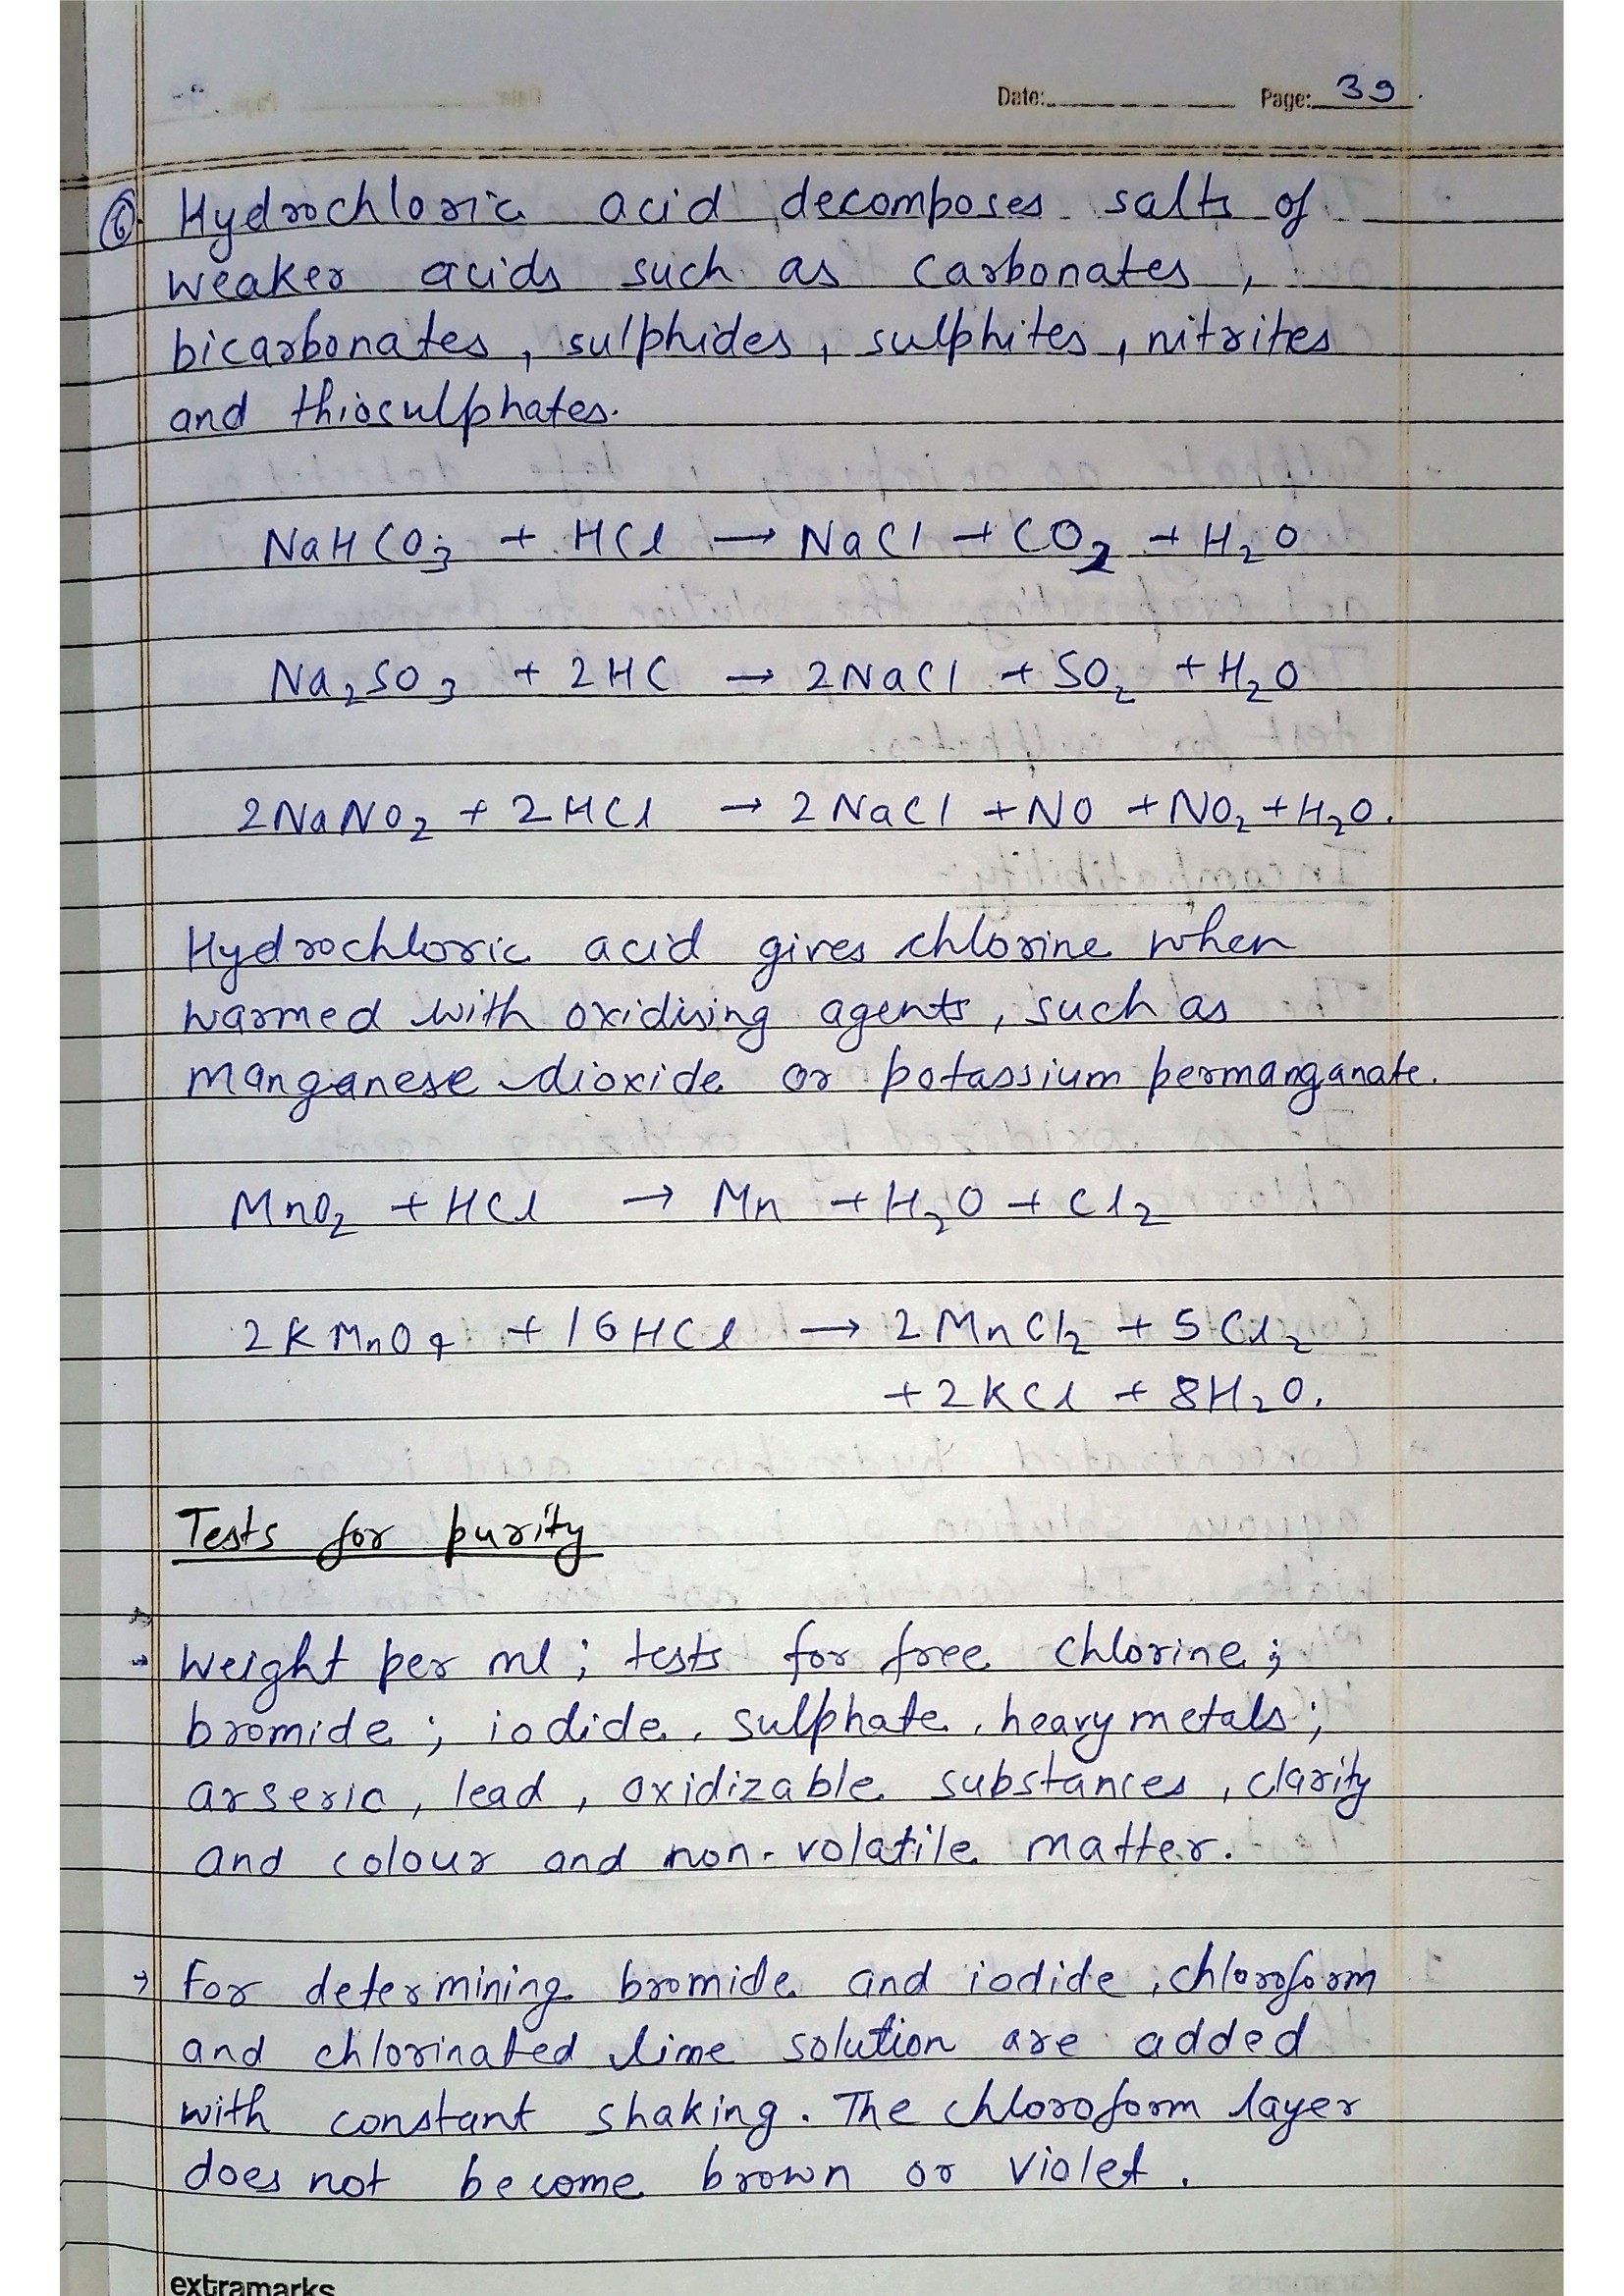 Date: Page: 39.
6. Hydrochloric acid decomposes salts of
weaker acids such as carbonates,
bicarbonates, sulphides, sulphites, nitrites
and thiosulphates.
NaHCO₃ + HCl → NaCl + CO₂ + H₂O
Na₂SO₃ + 2HC → 2NaCl + SO₂ + H₂O
2NaNO₂ + 2HCl → 2NaCl + NO + NO₂ + H₂O.
Hydrochloric acid gives chlorine when
warmed with oxidising agents, such as
manganese dioxide or potassium permanganate.
MnO₂ + HCl → Mn + H₂O + Cl₂
2KMnO₄ + 16HCl → 2MnCl₂ + 5Cl₂
+ 2KCl + 8H₂O.
Tests for purity
→ Weight per ml; tests for free chlorine;
bromide; iodide, sulphate, heavy metals;
arsenic, lead, oxidizable substances, clarity
and colour and non-volatile matter.
→ For determining bromide and iodide, chloroform
and chlorinated lime solution are added
with constant shaking. The chloroform layer
does not become brown or violet.
extramarks